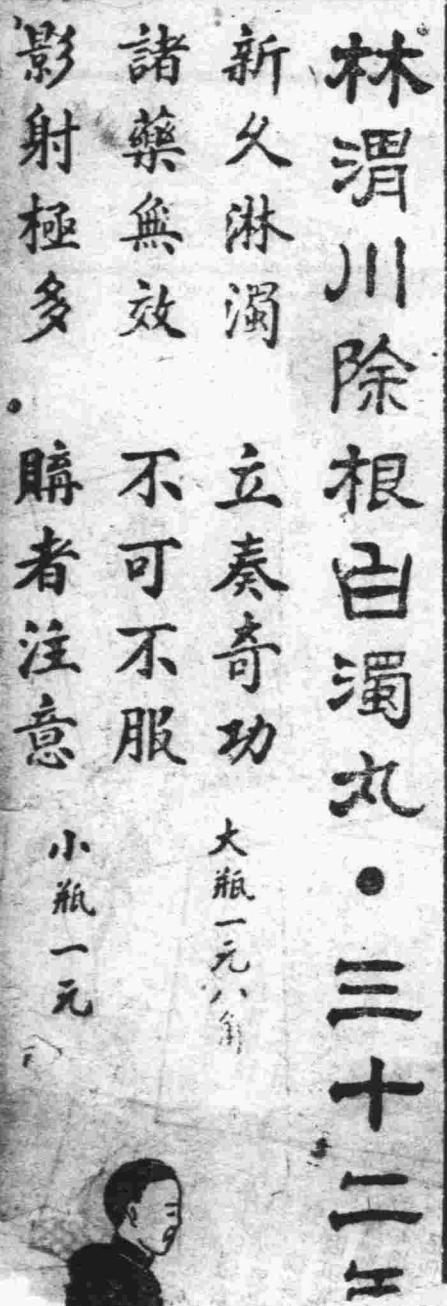 林渭川除根白濁丸•三十二年
新久淋濁 立奏奇功
大瓶一元八角
諸藥無效 不可不服
影射極多•購者注意
小瓶一元